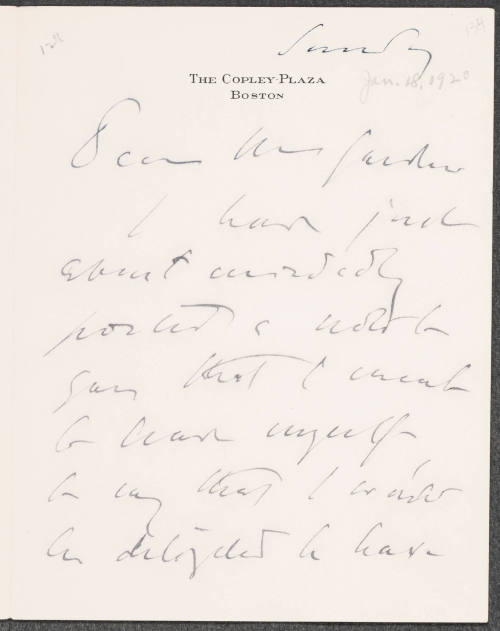 124
134
Sunday
THE COPLEY-PLAZA
BOSTON
Jan. 18, 1920
Dear Mrs Gardner
I have just
about
posted a note to
you that I meant
to leave myself,
to say that I would
be delighted to have